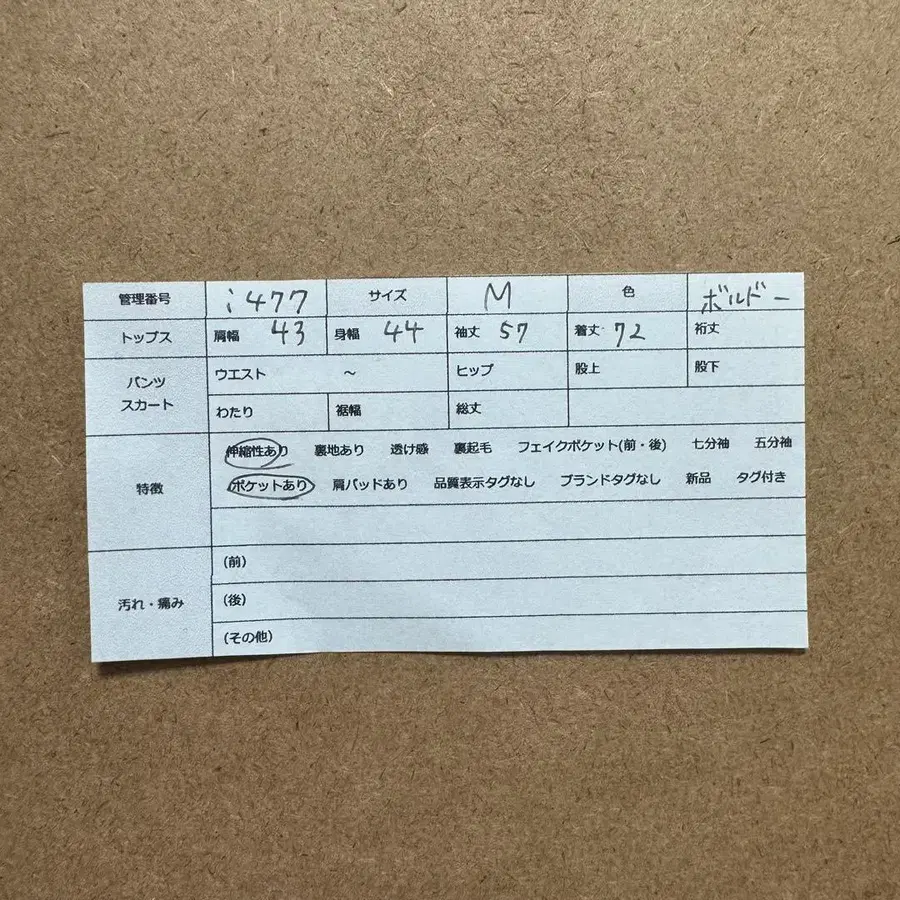 管理番号 i477 サイズ M 色 ボルドー
トップス 肩幅 43 身幅 44 袖丈 57 着丈 72 裄丈
パンツ スカート ウエスト ～ ヒップ 股上 股下
わたり 裾幅 総丈
特徴 伸縮性あり 裏地あり 透け感 裏起毛 フェイクポケット(前・後) 七分袖 五分袖
ポケットあり 肩パッドあり 品質表示タグなし ブランドタグなし 新品 タグ付き
汚れ・痛み (前)
(後)
(その他)